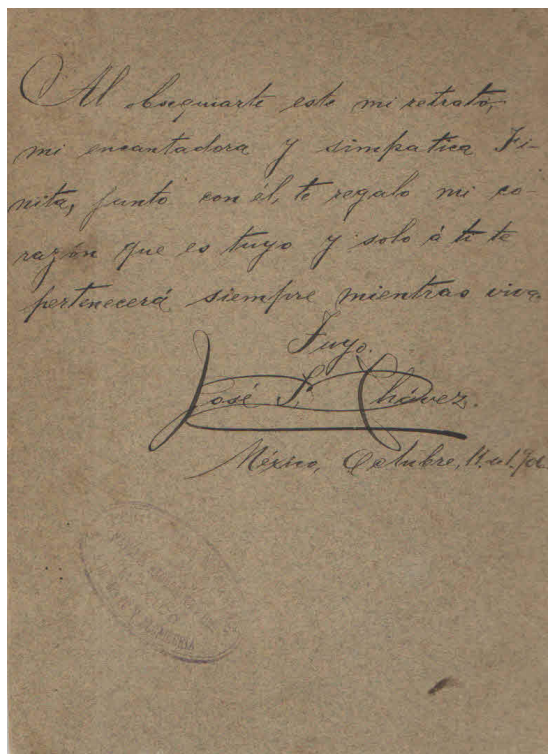 Al obsequiarte este mi retrato,
mi encantadora y simpatica Fi-
nita, junto con él, te regalo mi co-
razón que es tuyo y solo á ti te
pertenecerá siempre mientras viva.
Tuyo.
José S. Chávez.
México, Octubre,